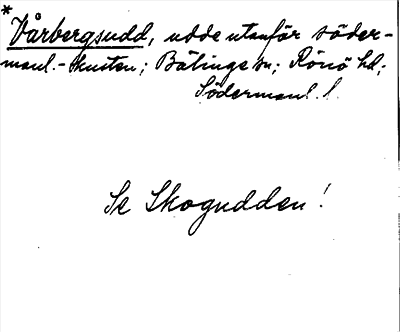 *
Vårbergsudd, udde utanför söder-
manl.-kusten; Bälinge sn; Rönö hd;
Södermanl. l.
Se Skogudden!